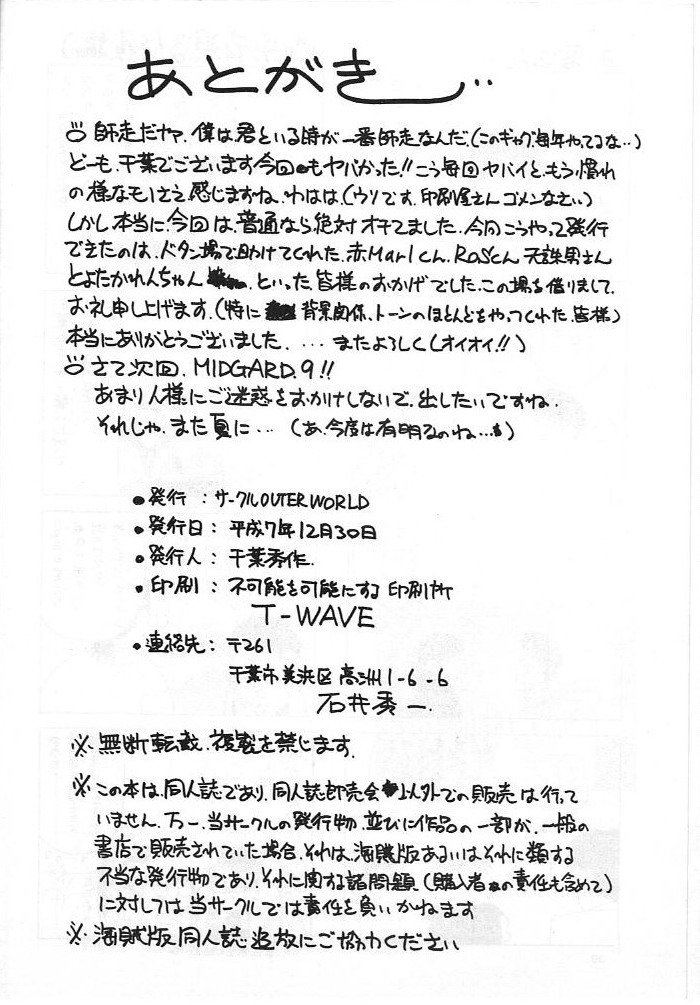 あとがき‥
○師走だヤァ、僕は君といる時が一番師走なんだ。(このギャグ毎年やってるな‥)
どーも、千葉でございます今回もヤバかった!!こう毎回ヤバイと、もう慣れ
の様なモノさえ感じますね、わはは、(ウソです、印刷屋さんゴメンなさい)
しかし本当に今回は、普通なら絶対オチてました、今回こうやって発行
できたのは、ドタン場で助けてくれた、赤Marlくん、RaSくん 天誅男さん
とよたかれんちゃん、といった皆様のおかげでした、この場を借りまして、
お礼申し上げます、(特に背景関係、トーンのほとんどをやってくれた、皆様)
本当にありがとうございました、‥‥またよろしく(オイオイ!!)
○さて次回、MIDGARD 9!!
あまり人様にご迷惑をおかけしないで、出したいですね、
それじゃ、また夏に‥‥(あ、今度は有明なのね‥‥)
●発行 : サークルOUTER WORLD
●発行日 : 平成7年12月30日
●発行人 : 千葉秀作
●印刷 : 不可能を可能にする印刷所
T-WAVE
●連絡先 : 〒261
千葉市美浜区高洲1-6-6
石井秀一
※無断転載、複製を禁じます、
※この本は、同人誌であり、同人誌即売会以外での販売は行って
いません、万一、当サークルの発行物、並びに作品の一部が、一般の
書店で販売されていた場合、それは、海賊版あるいはそれに類する
不当な発行物であり、それに関する諸問題(購入者の責任も含めて)
に対しては当サークルでは責任を負いかねます
※海賊版同人誌追放にご協力ください